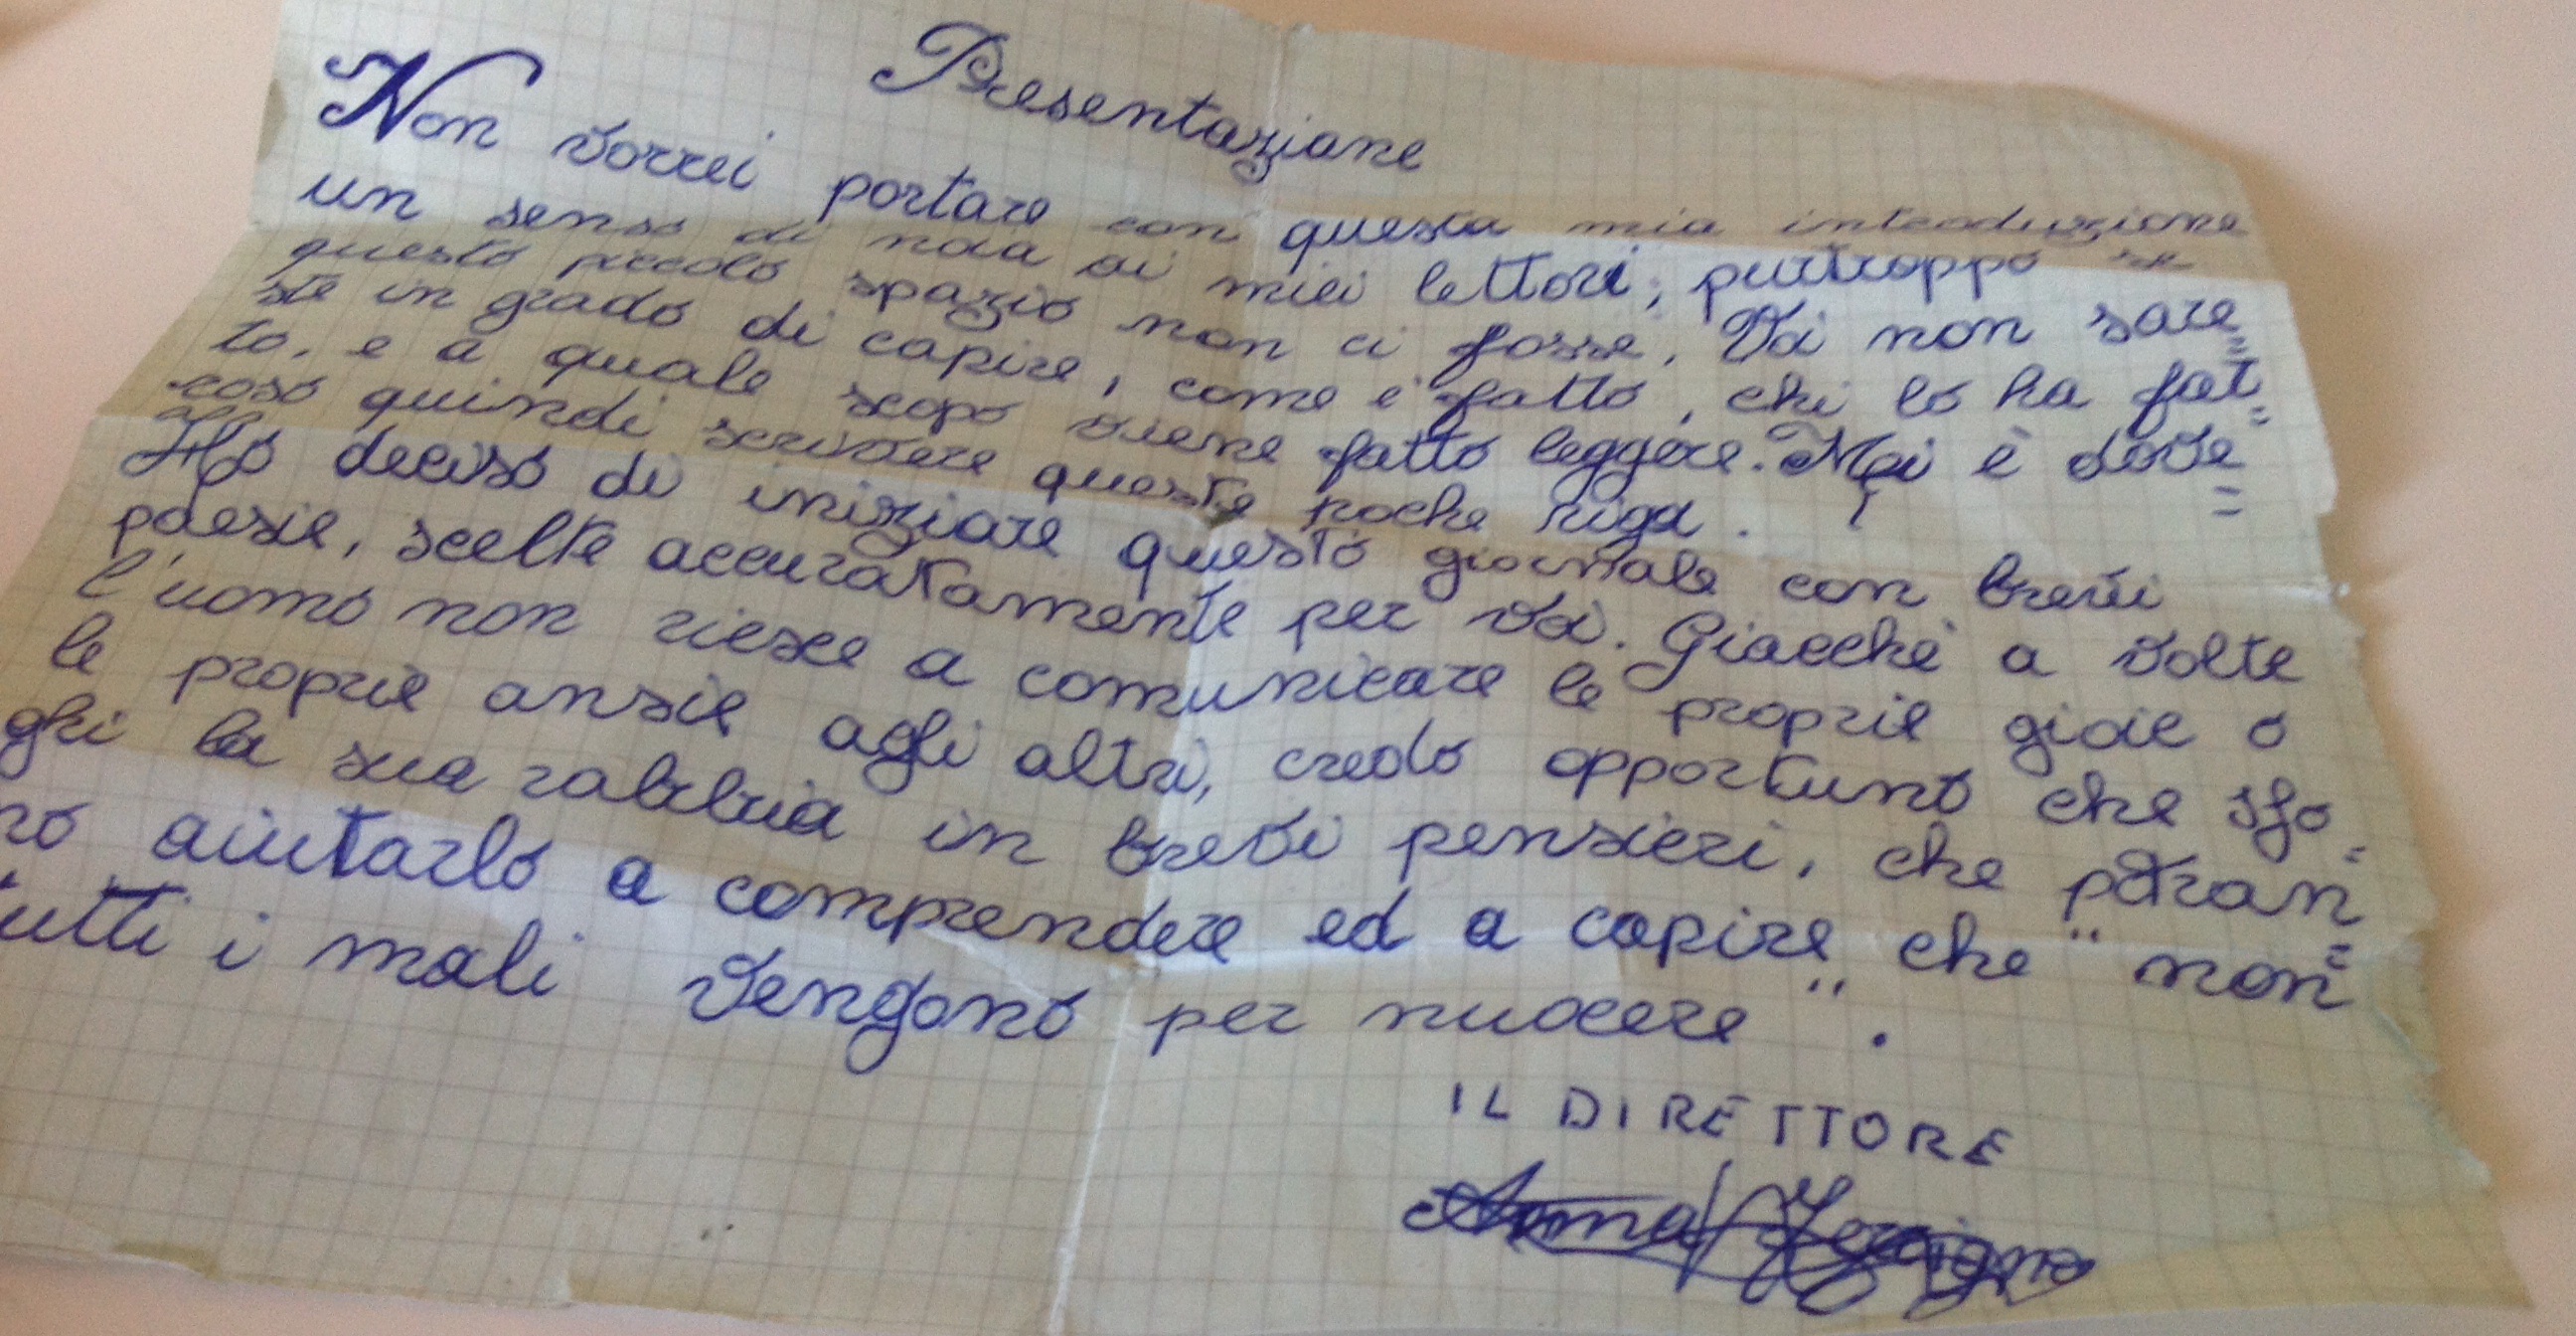 Presentazione
Non vorrei portare con questa mia introduzione
un senso di noia ai miei lettori, purtroppo se
questo piccolo spazio non ci fosse, Voi non sare=
ste in grado di capire, come è fatto, chi lo ha fat=
to, e a quale scopo viene fatto leggere. Mai è dove=
roso quindi scrivere queste poche riga.
Ho deciso di iniziare questo giornale con brevi
poesie, scelte accuratamente per voi. Giacchè a volte
l'uomo non riesce a comunicare le proprie gioie o
le proprie ansie agli altri, credo opportuno che sfo=
ghi la sua rabbia in brevi pensieri, che potran=
no aiutarlo a comprendere ed a capire che "non
tutti i mali vengono per nuocere".
IL DIRETTORE
Anna